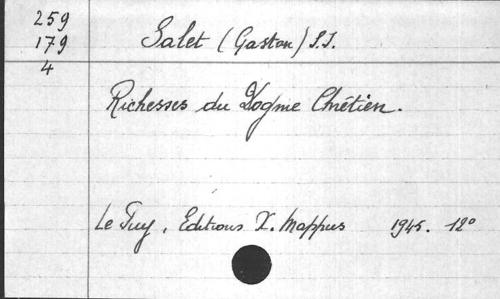 259
179
4
Salet (Gaston) S.J.
Richesses du Dogme Chrétien.
Le Puy, Editions X. Mappus 1945. 12°